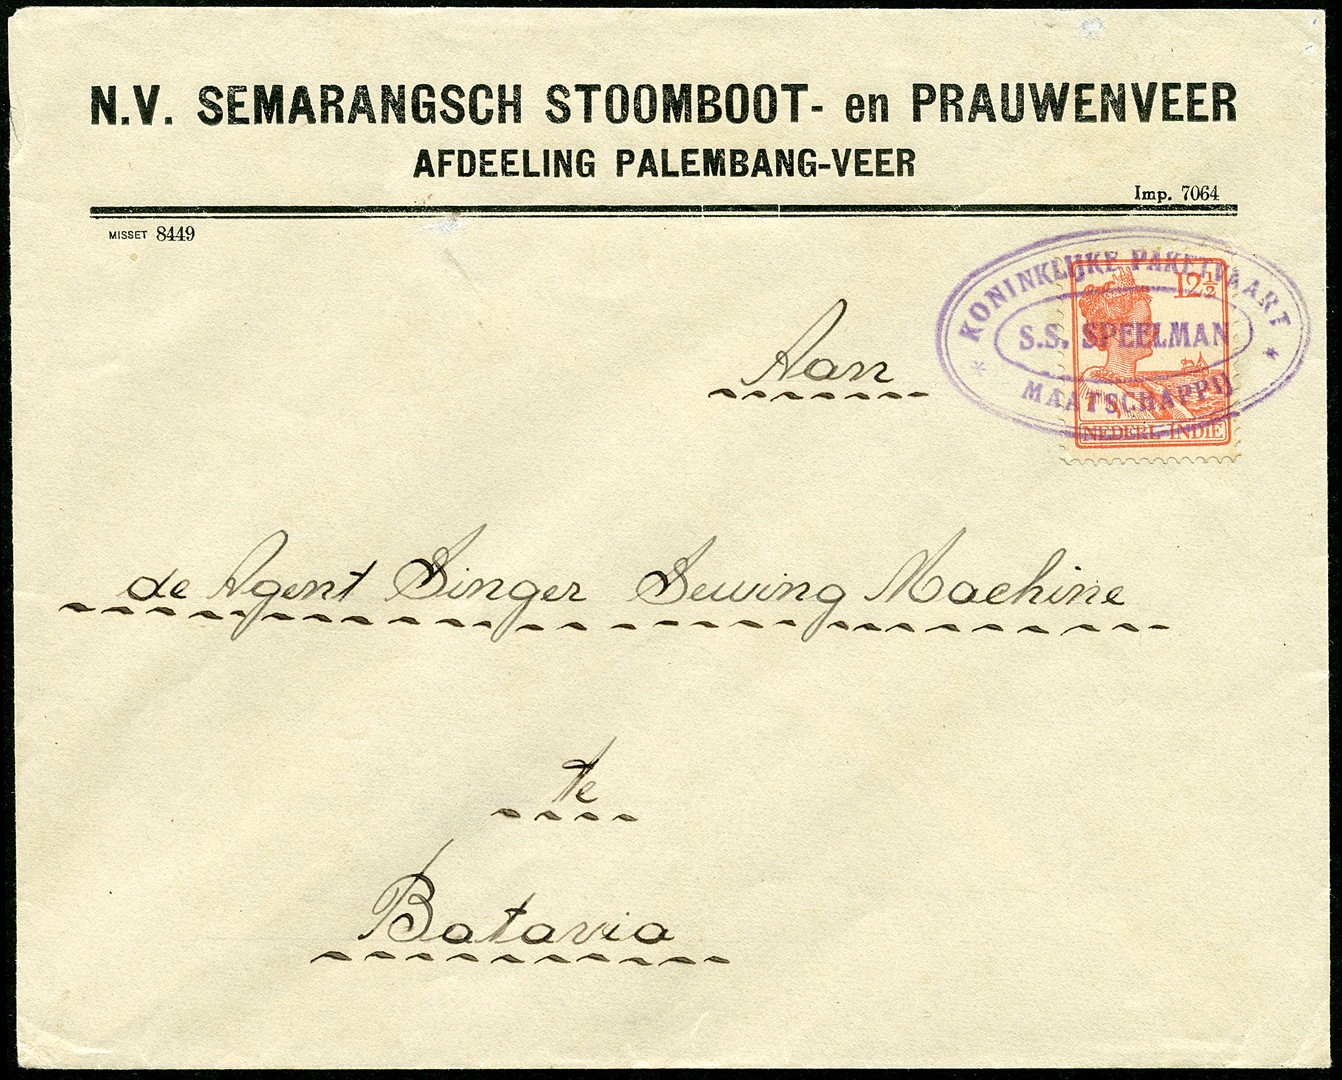 N.V. SEMARANGSCH STOOMBOOT- en PRAUWENVEER
AFDEELING PALEMBANG-VEER
Imp. 7064
MISSET 8449
KONINKLIJKE PAKETVAART
12½
S.S. SPEELMAN
MAATSCHAPPIJ
NEDERL-INDIË
Aan
de Agent Singer Sewing Machine
te
Batavia